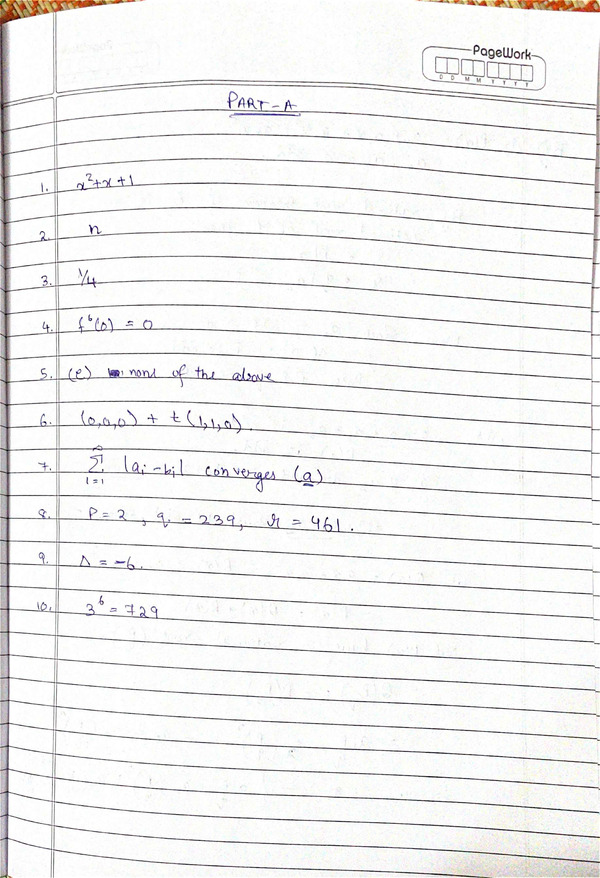 PageWork
D D M M Y Y Y Y
PART-A
1. x²+x+1
2. n
3. 1/4
4. f⁶(0) = 0
5. (e) none of the above
6. (0,0,0) + t(1,1,0).
7. ∞∑i=1 |ai - bi| converges (a)
8. P = 2, q = 239, r = 461.
9. Λ = -6.
10. 3⁶ = 729